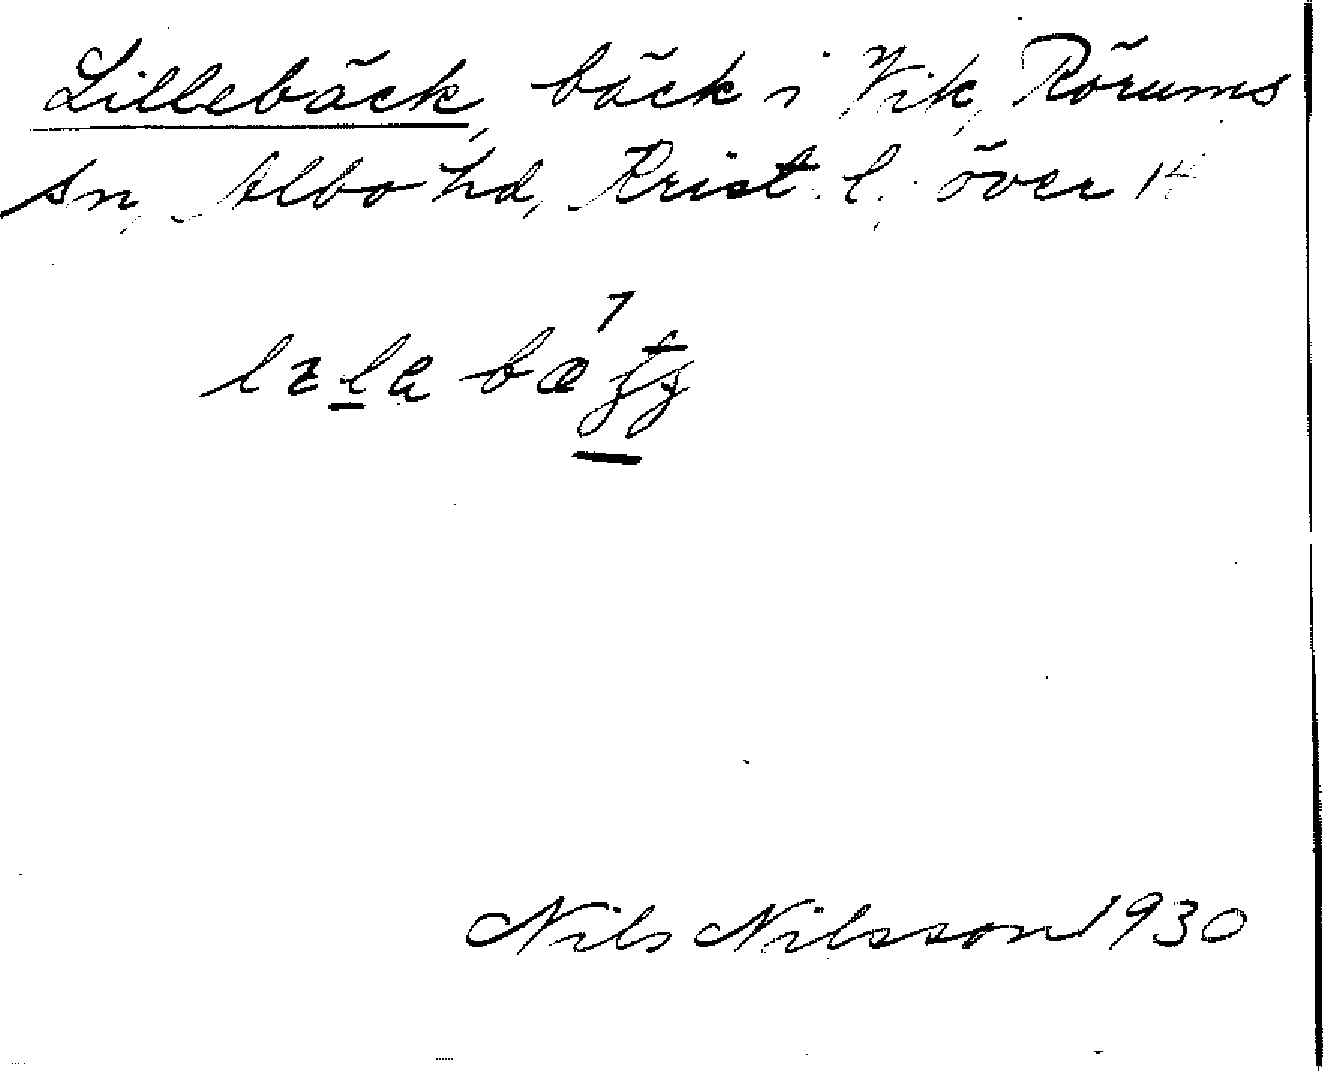 Lillebäck, bäck i Vik, Rörums
sn, Albo hd, Krist. l. över 14
Nils Nilsson 1930